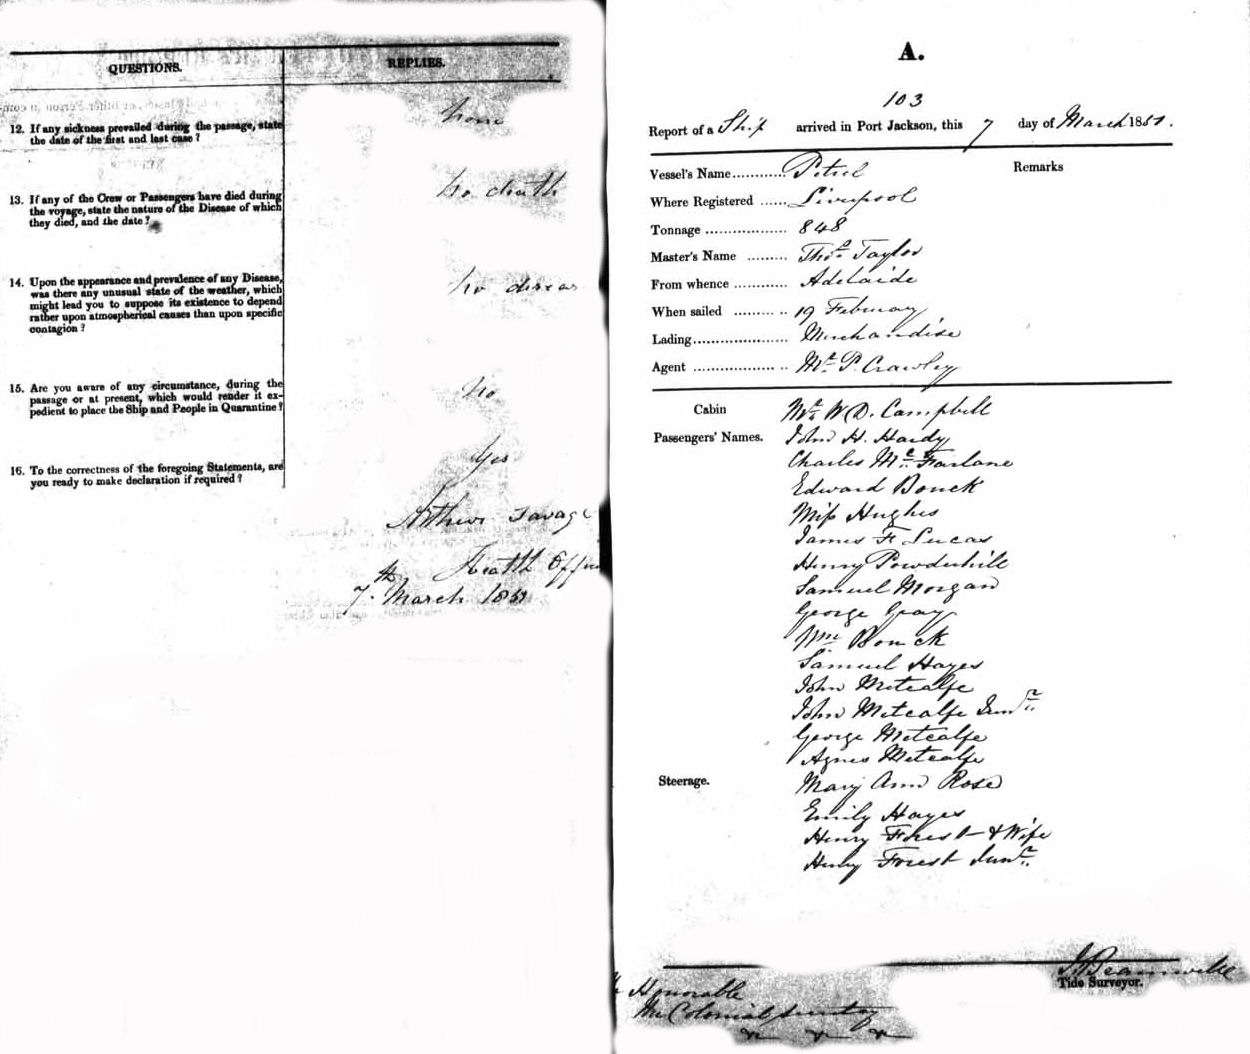 QUESTIONS.
REPLIES.
12. If any sickness prevailed during the passage, state
the date of the first and last case?
none
13. If any of the Crew or Passengers have died during
the voyage, state the nature of the Disease of which
they died, and the date?
no death
14. Upon the appearance and prevalence of any Disease,
was there any unusual state of the weather, which
might lead you to suppose its existence to depend
rather upon atmospherical causes than upon specific
contagion?
no diseas
15. Are you aware of any circumstance, during the
passage or at present, which would render it ex-
pedient to place the Ship and People in Quarantine?
No
16. To the correctness of the foregoing Statements, are
you ready to make declaration if required?
Yes
Arthur Savage
Health Offi
7th March 1851
A.
103
Report of a Ship arrived in Port Jackson, this 7 day of March 1851.
Vessel's Name............ Petrel
Remarks
Where Registered ...... Liverpool
Tonnage .................. 848
Master's Name ......... Thos. Taylor
From whence ............ Adelaide
When sailed ............ 19 February
Lading...................... Merchandise
Agent .................... Mr. P. Crawley
Cabin
Passengers' Names.
Mr. W. D. Campbell
John H. Hardy
Charles Mc. Farlane
Edward Bonck
Miss Hughes
James F. Lucas
Henry Powderhill
Samuel Morgan
George Gray
Wm. Bonck
Samuel Hayes
John Metcalfe
John Metcalfe Junr.
George Metcalfe
Agnes Metcalfe
Steerage.
Mary Ann Rose
Emily Hayes
Henry Forest & Wife
Henry Forest Junr.
Tide Surveyor.
Honorable
The Colonial Secretary